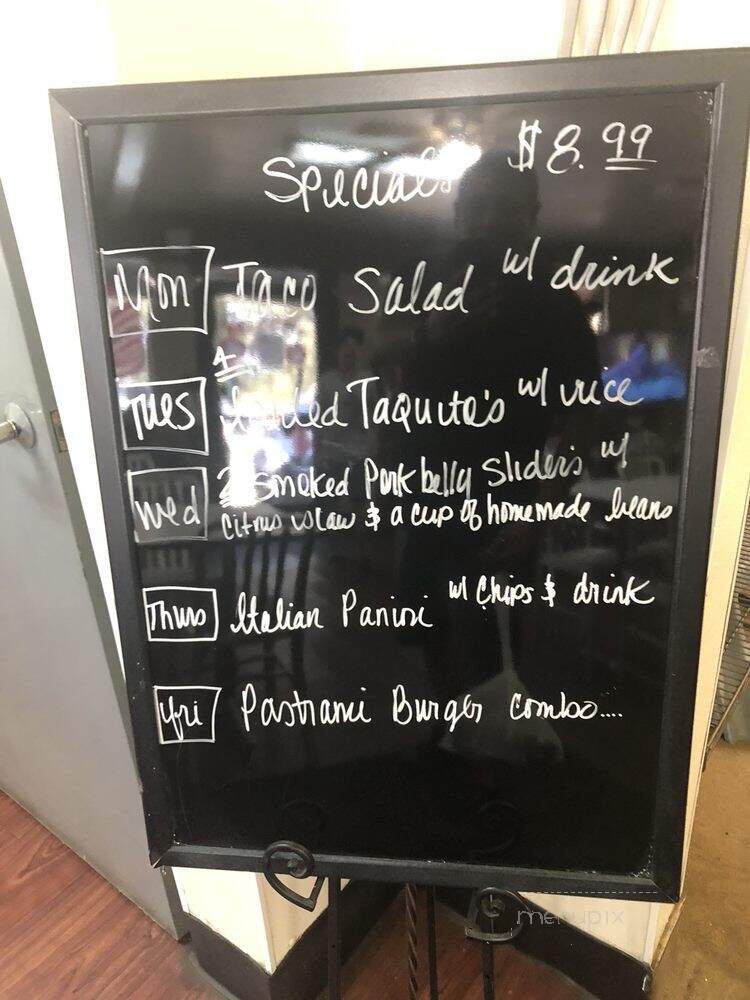 Specials $8.99
Mon Taco Salad w/ drink
4
Tues loaded Taquito's w/ rice
Wed 2 smoked Pork belly Sliders w/
citrus slaw & a cup of homemade beans
Thurs Italian Panini w/ Chips & drink
Fri Pastrami Burger combo....
menupix